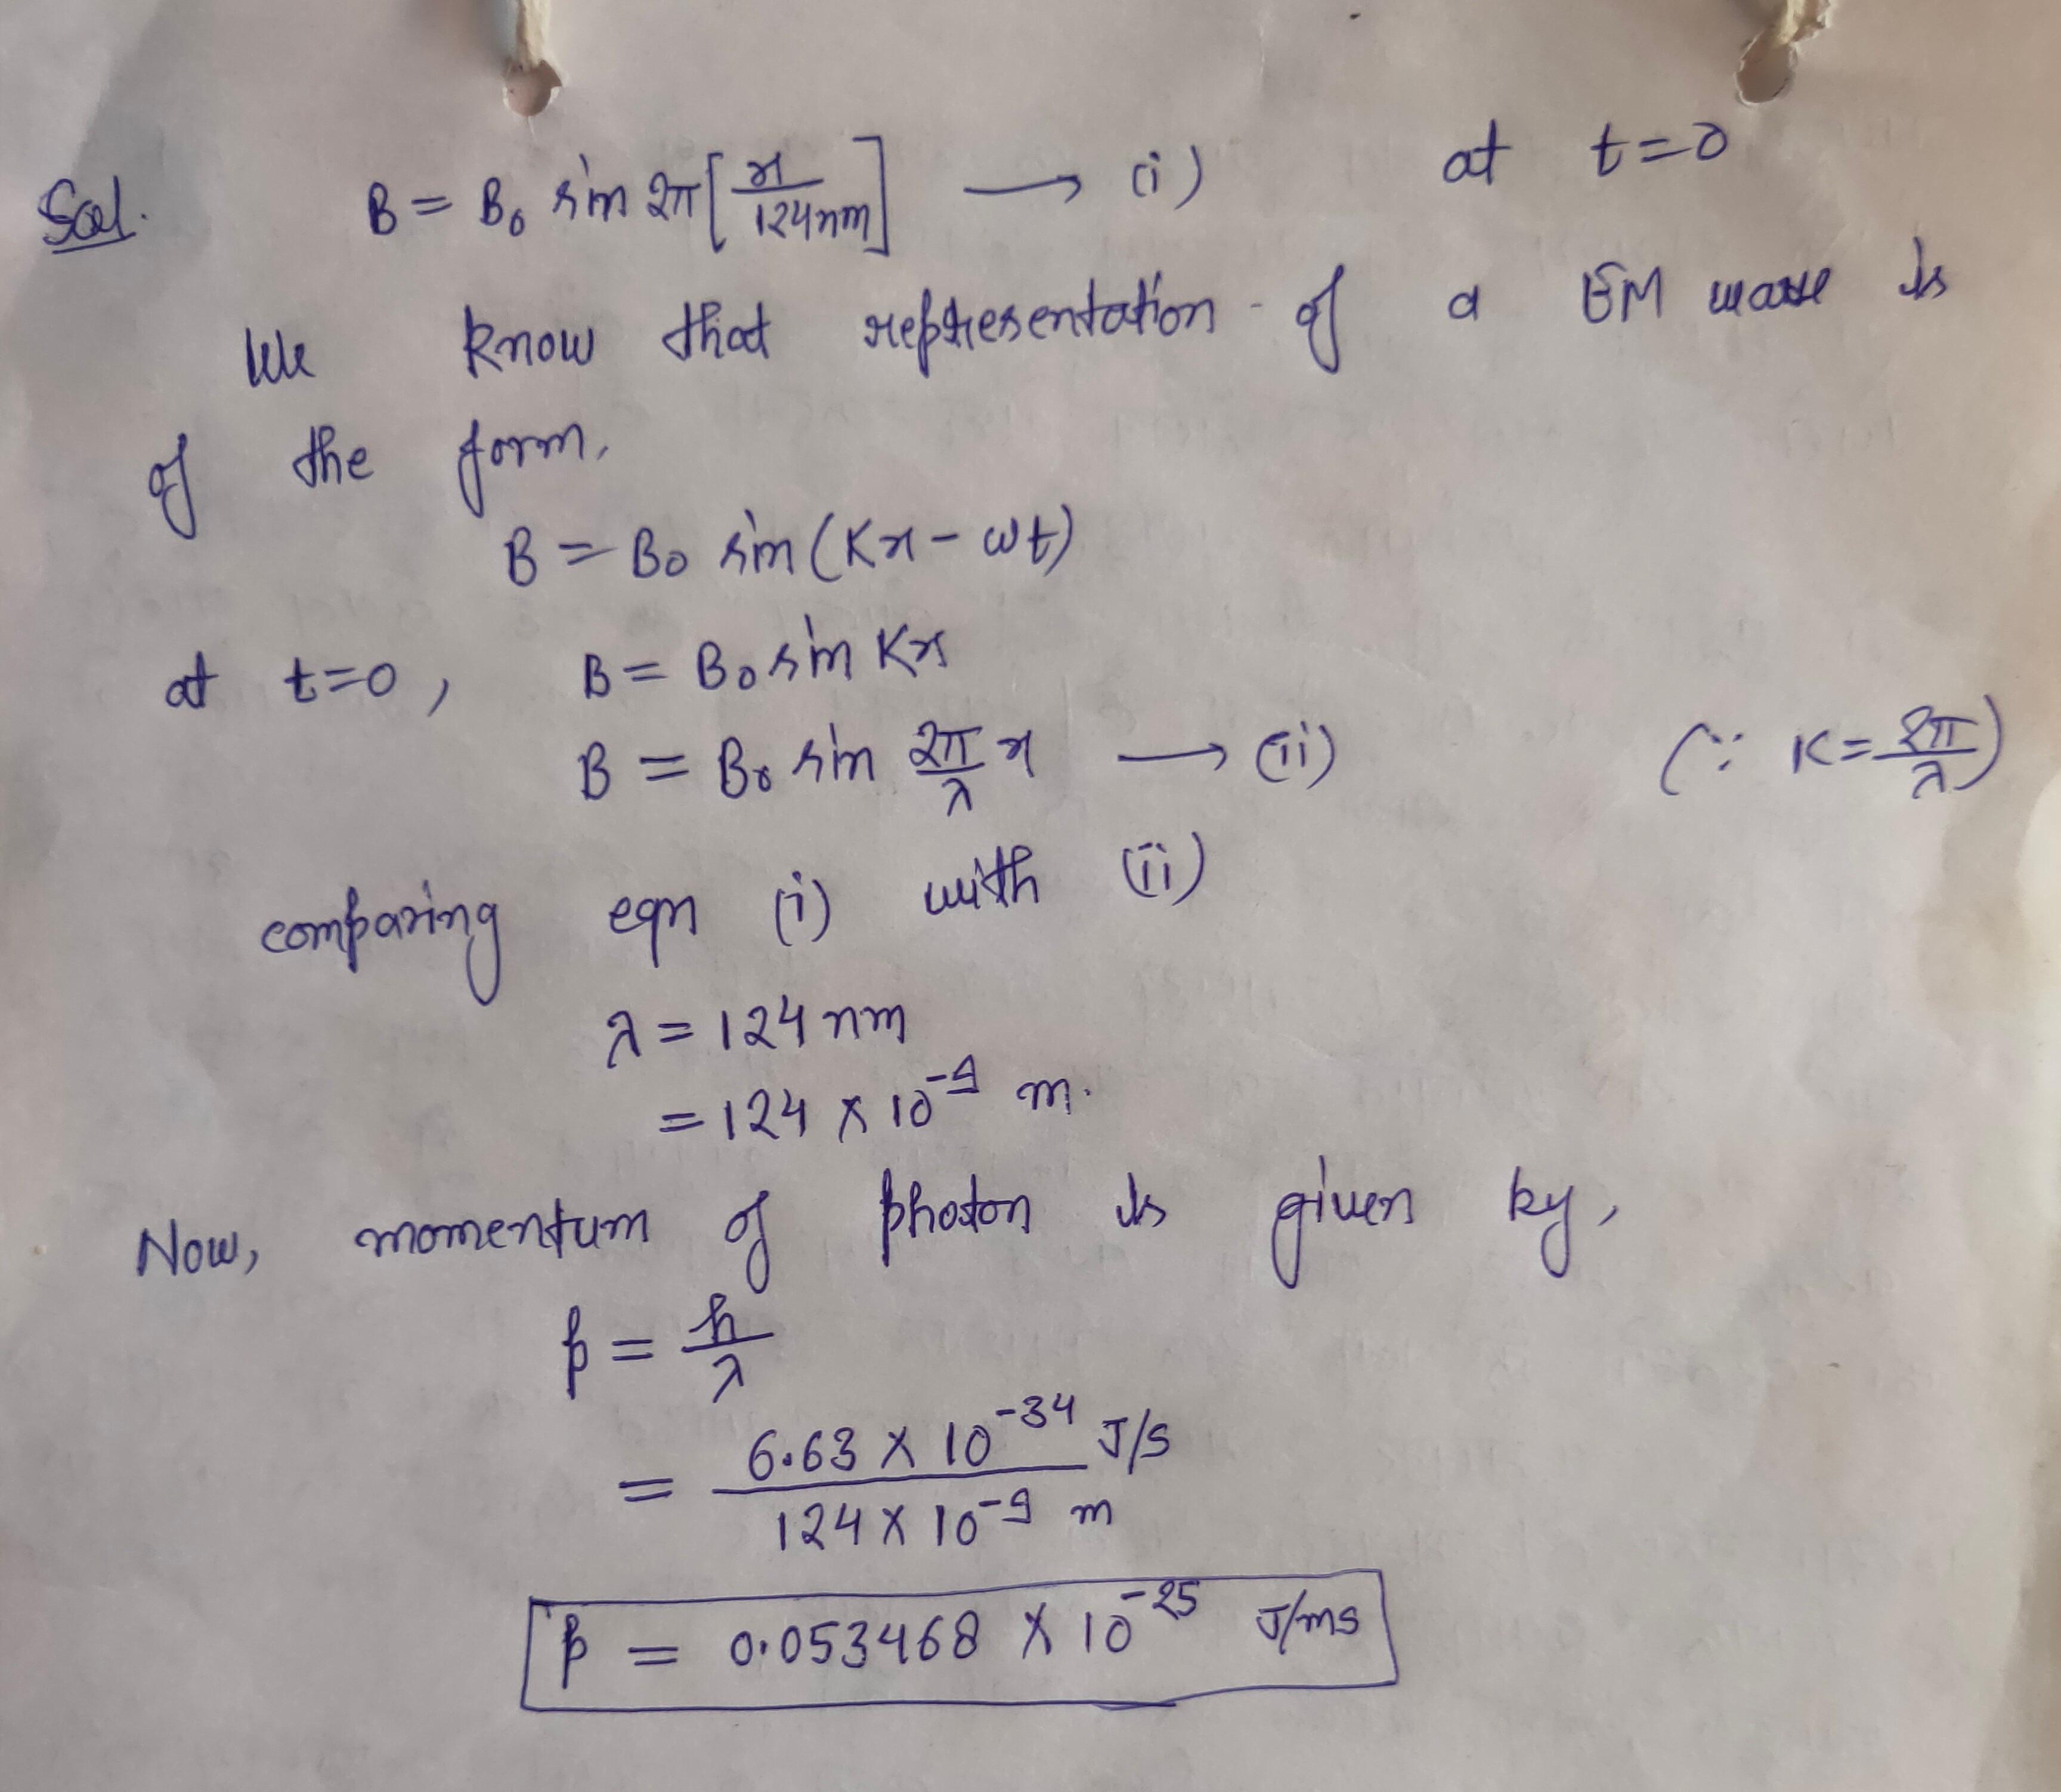 Sol. B = B₀ sin 2π[x/124nm] → (i) at t=0
We know that representation of a EM wave is
of the form,
B = B₀ sin(Kx - ωt)
at t=0, B = B₀ sin Kx
B = B₀ sin 2π/λ x → (ii) (∵ K = 2π/λ)
comparing eqn (i) with (ii)
λ = 124 nm
= 124 × 10⁻⁹ m.
Now, momentum of photon is given by,
p = h/λ
= 6.63 × 10⁻³⁴ J/s / 124 × 10⁻⁹ m
p = 0.053468 × 10⁻²⁵ J/ms